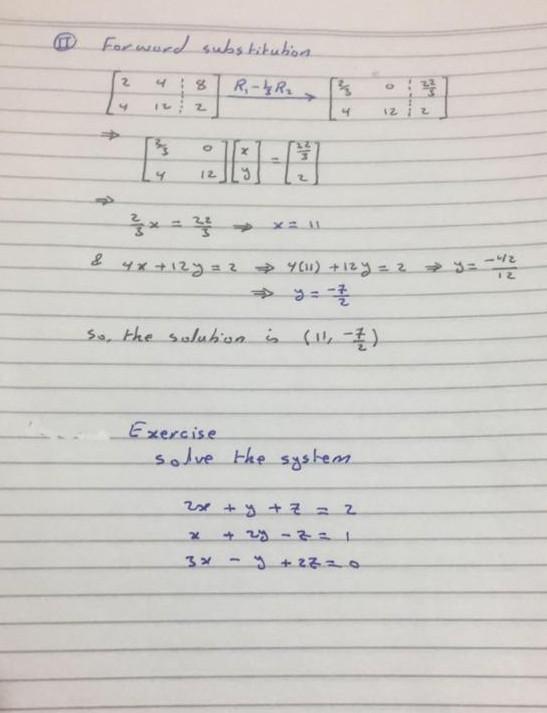 II Forward substitution
[2 4 ⋮ 8; 4 12 ⋮ 2] R₁-⅓R₂ → [⅔ 0 ⋮ 22/3; 4 12 ⋮ 2]
⇒ [⅔ 0; 4 12] [x; y] = [22/3; 2]
⇒
⅔x = 22/3 ⇒ x = 11
& 4x + 12y = 2 ⇒ 4(11) + 12y = 2 ⇒ y = -42/12
⇒ y = -7/2
So, the solution is (11, -7/2)
Exercise
solve the system
2x + y + z = 2
x + 2y - z = 1
3x - y + 2z = 0